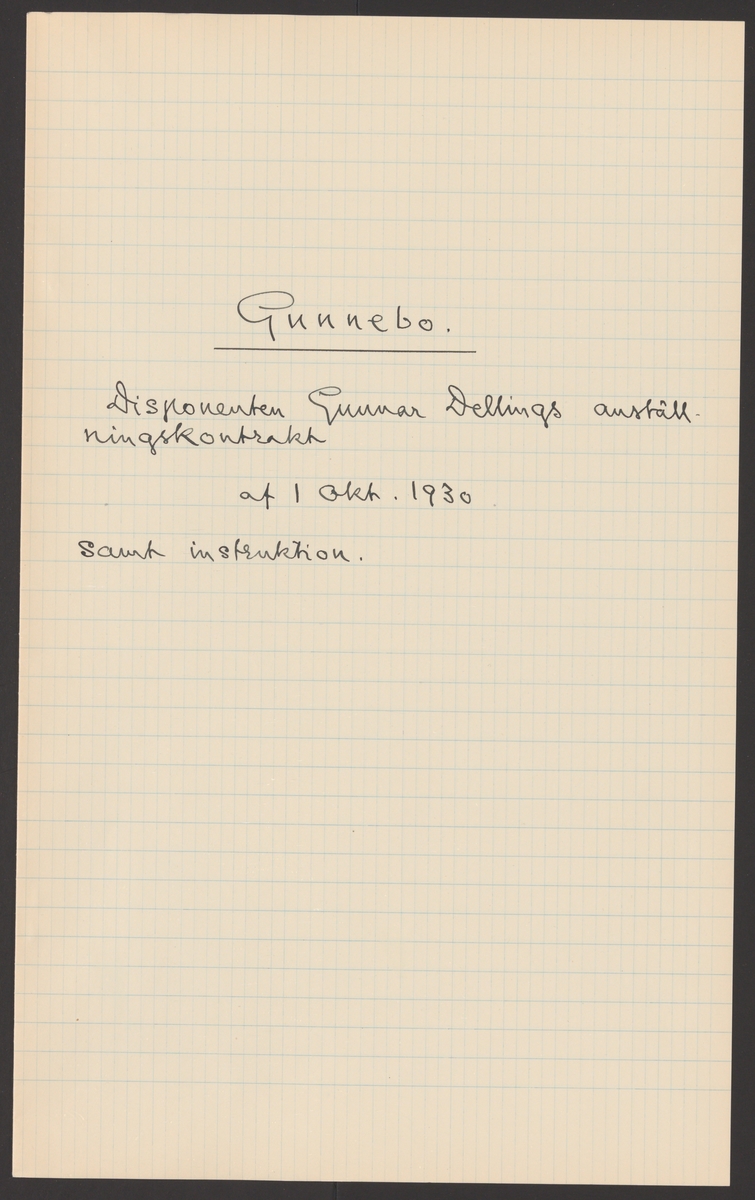 Gunnebo.
Disponenten Gunnar Dellings anställ-
ningskontrakt
af 1 Okt. 1930
samt instruktion.